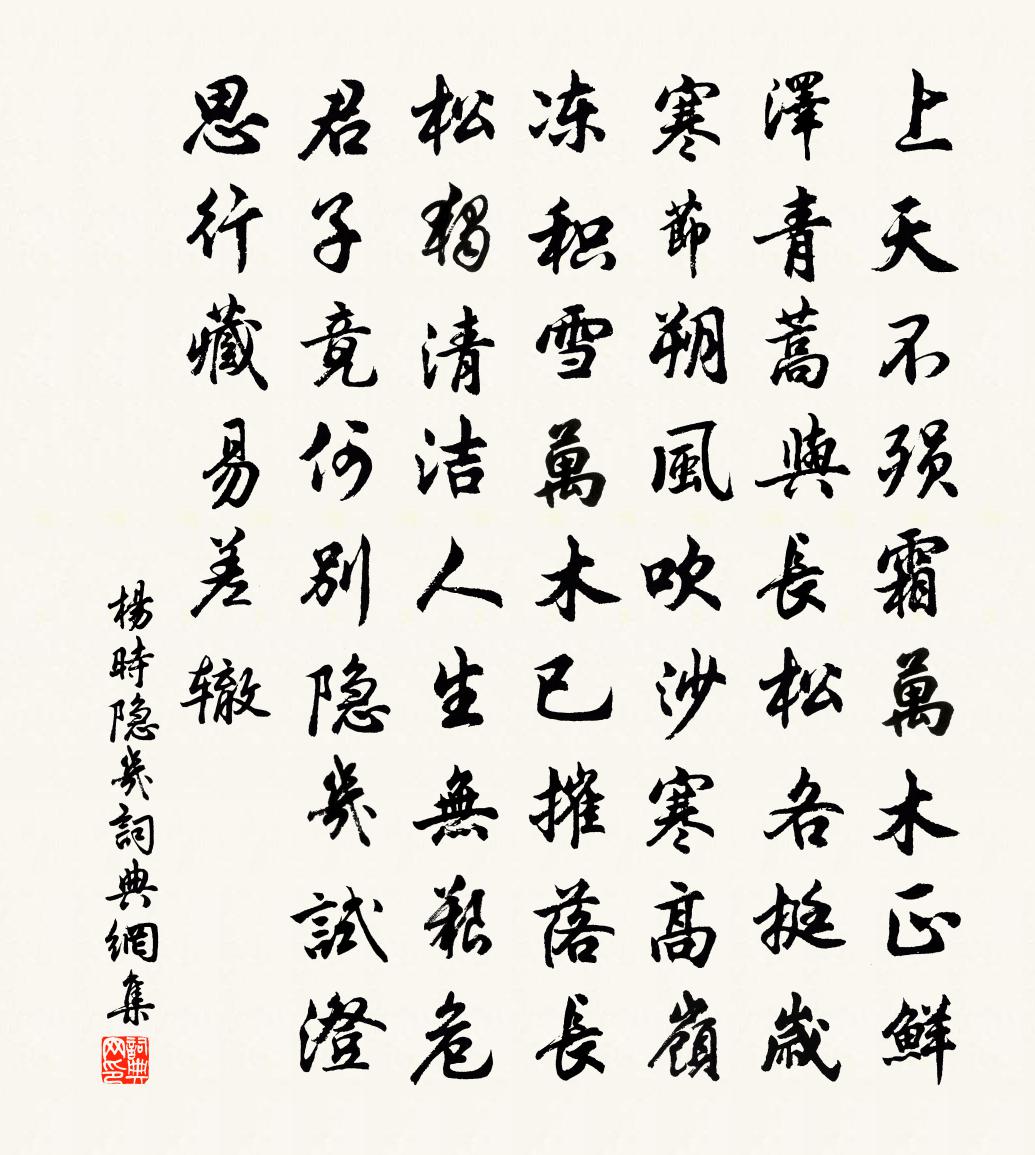 上天不殒霜萬木正鮮
澤青蒿與長松各挺歲
寒節朔風吹沙寒高嶺
冻积雪萬木已摧落長
松獨清洁人生無艱危
君子竟何別隐幾試澄
思行藏易差辙
楊時隐幾詞典網集
詞典网印